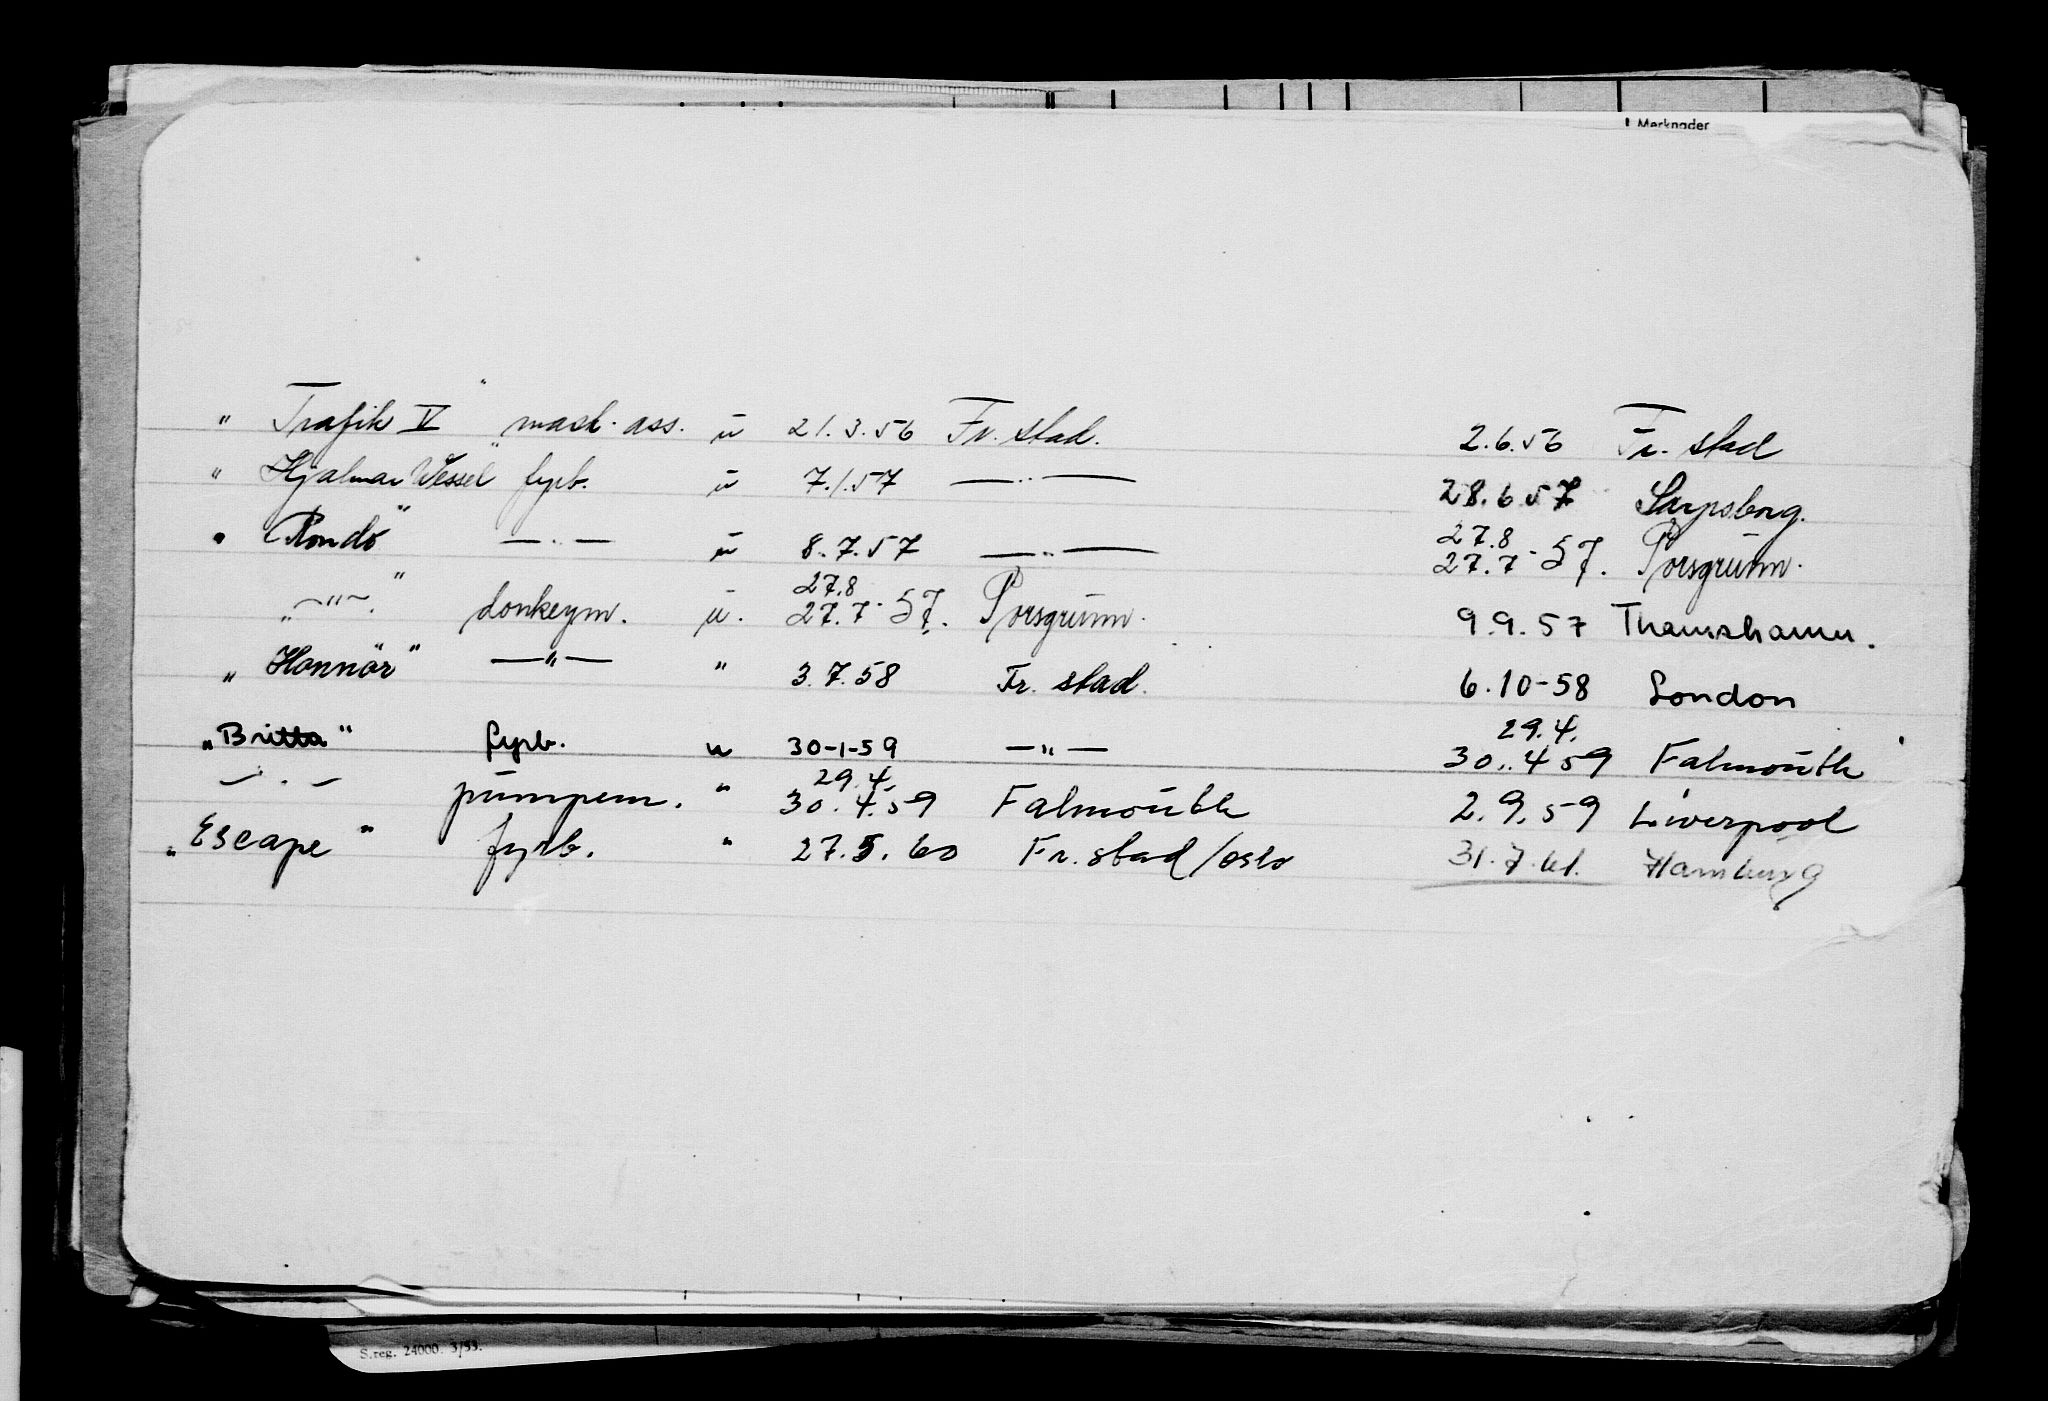 Merknader
" Trafik V " mask. ass. u 21.3.56 Fr. stad. 2.6.56 Fr. stad
" Hjalmar Wessel" fyrb. u 7.1.57 —"— 28.6.57 Sarpsborg.
" Rondo" —"— u 8.7.57 —"— 27.8 27.7-57. Porsgrunn.
—"—" donkeym. u. 27.8 27.7-57. Porsgrunn. 9.9.57 Thamshamn.
„ Honnör" —"— " 3.7.58 Fr. stad. 6.10-58 London
„Britta" fyrb. u 30-1-59 —"— 29.4. 30.4 59 Falmouth
—"— pumpem. " 29.4. 30.4.59 Falmouth 2.9.59 Liverpool
„Escape" fyrb. " 27.5.60 Fr. stad/Oslo 31.7.61. Hamburg
S.reg. 24000. 3/53.